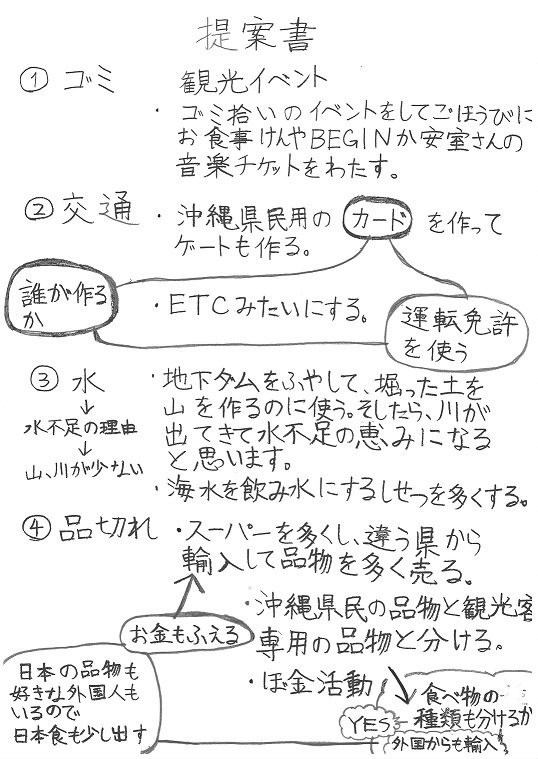 提案書
① ゴミ 観光イベント
・ゴミ拾いのイベントをしてごほうびに
お食事けんやBEGINか安室さんの
音楽チケットをわたす。
② 交通 ・沖縄県民用の カード を作って
ゲートも作る。
誰が作る
か
・ETCみたいにする。
運転免許
を使う
③ 水 ・地下ダムをふやして、掘った土を
山を作るのに使う。そしたら、川が
出てきて水不足の恵みになる
と思います。
↓
水不足の理由
↓
山、川が少ない
・海水を飲み水にするしせつを多くする。
④ 品切れ ・スーパーを多くし、違う県から
輸入して品物を多く売る。
お金もふえる
・沖縄県民の品物と観光客
専用の品物と分ける。
・ぼ金活動
日本の品物も
好きな外国人も
いるので
日本食も少し出す
食べ物の
種類も分けるか
YES
外国からも輸入